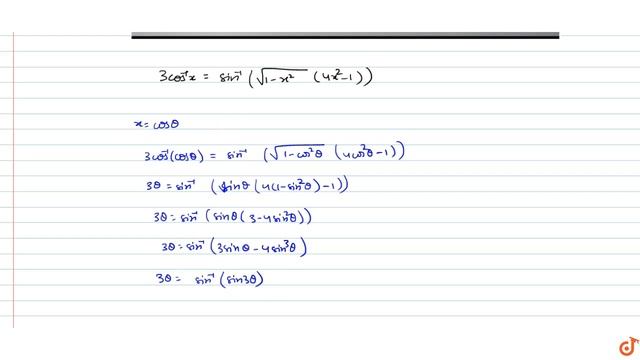 3cos⁻¹x = sin⁻¹(√1-x² (4x²-1))
x=cosθ
3cos⁻¹(cosθ) = sin⁻¹ (√1-cos²θ (4cos²θ-1))
3θ = sin⁻¹ (sinθ(4(1-sin²θ)-1))
3θ = sin⁻¹ (sinθ(3-4sin²θ))
3θ = sin⁻¹ (3sinθ-4sin³θ)
3θ = sin⁻¹ (sin3θ)